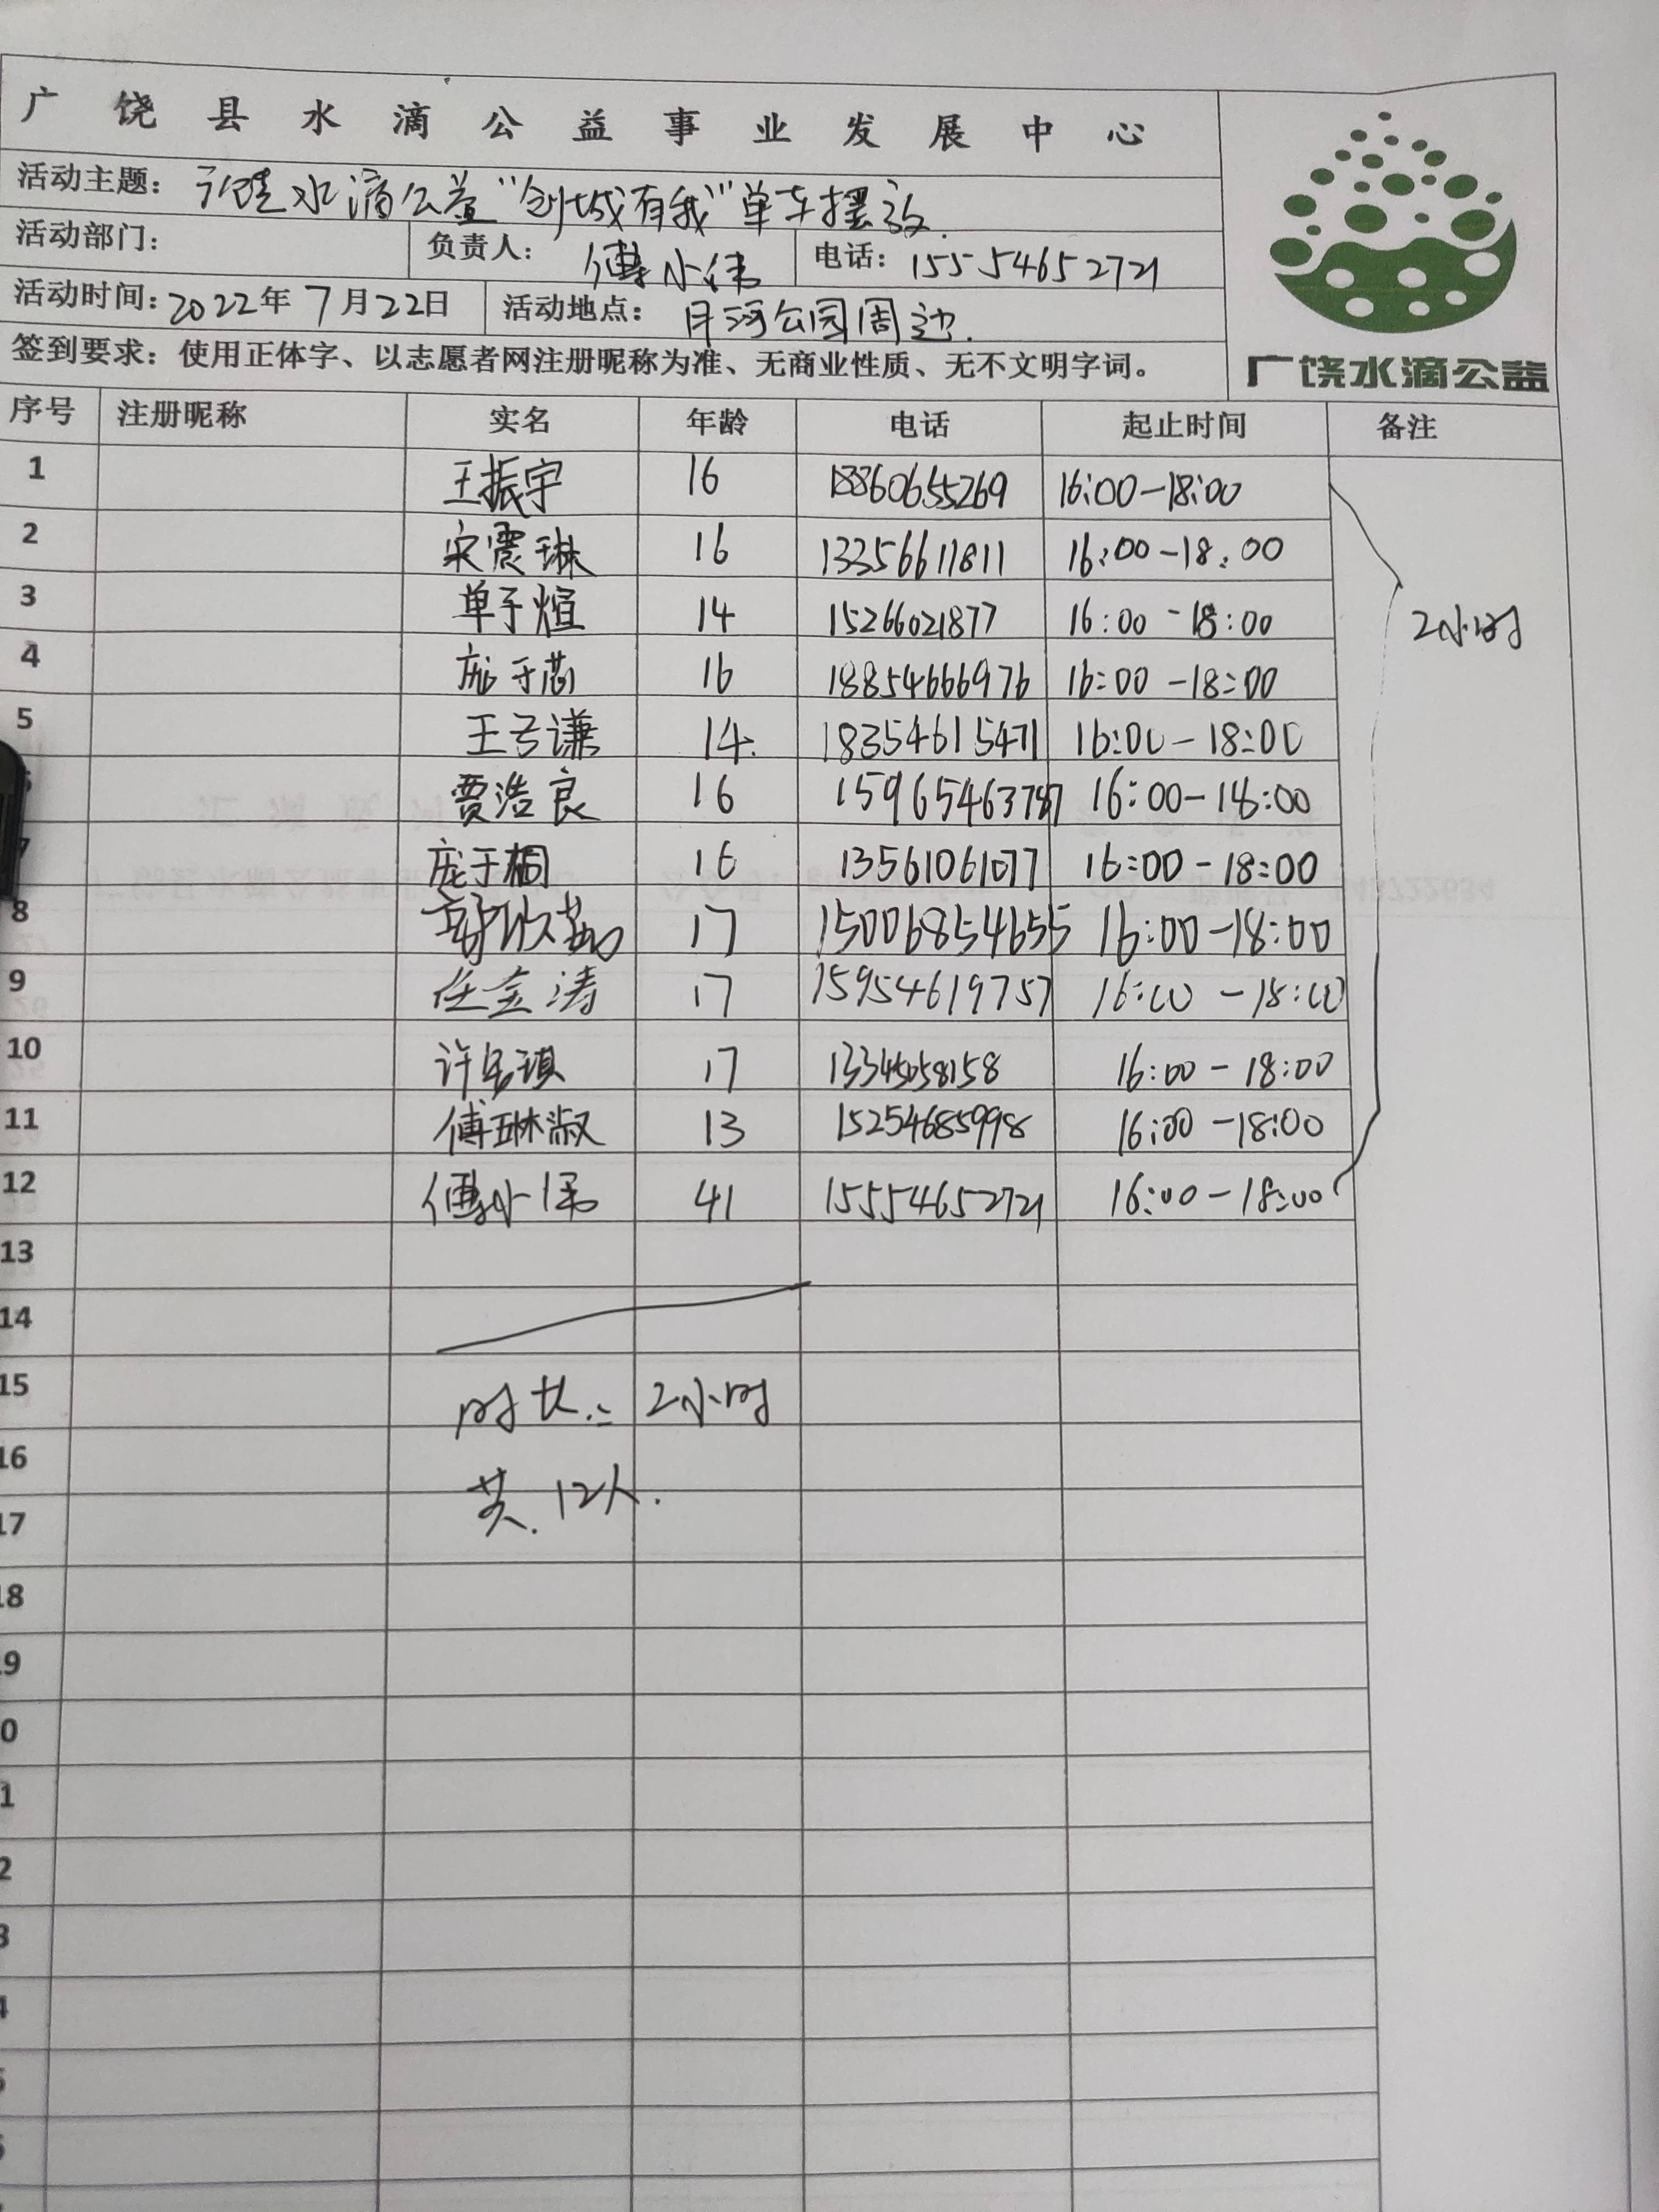 广饶县水滴公益事业发展中心
活动主题：广饶水滴公益"创城有我"单车摆放.
活动部门： 负责人：傅小伟 电话：15554652721
活动时间：2022年7月22日 活动地点：月河公园周边.
签到要求：使用正体字、以志愿者网注册昵称为准、无商业性质、无不文明字词。
广饶水滴公益
序号 注册昵称 实名 年龄 电话 起止时间 备注
1 王振宇 16 18860655269 16:00-18:00
2 宋震琳 16 13356611811 16:00-18:00
3 单于煊 14 15266021877 16:00-18:00
2小时
4 庞于茜 16 18854666976 16:00-18:00
5 王亏谦 14. 18354615471 16:00-18:00
贾浩良 16 16:00-18:00
7 庞于桐 16 13561061077 16:00-18:00
8 17 15006854655 16:00-18:00
9 任金涛 17 15954619757 16:00-18:00
10 许宝琪 17 16:00-18:00
11 傅琳淑 13 15254685998 16:00-18:00
12 傅小伟 41 15554652721 16:00-18:00
13
14
15 时长：2小时
16
共.12人.
17
18
19